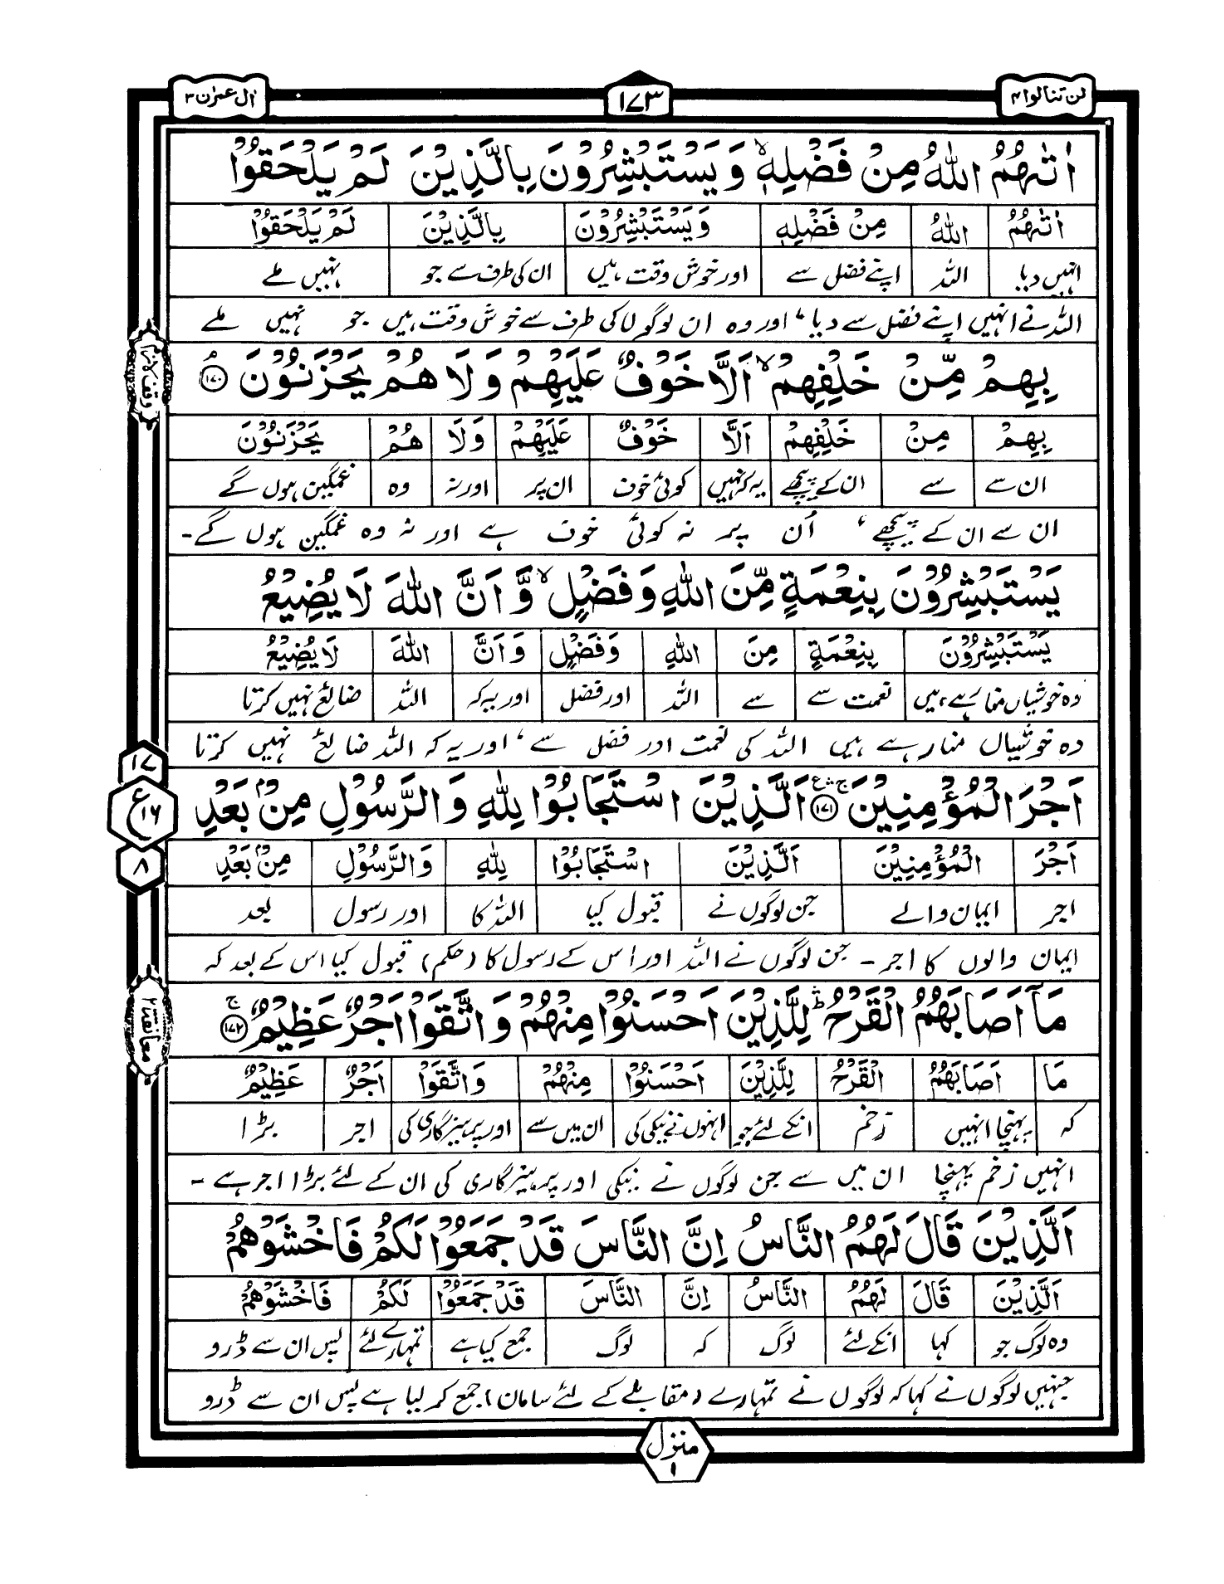 لن تنالوا ۴
۱۷۳
اٰل عمرٰن ۳
اٰتٰىهُمُ اللّٰهُ مِنْ فَضْلِهٖ ۙ وَيَسْتَبْشِرُوْنَ بِالَّذِيْنَ لَمْ يَلْحَقُوْا
اٰتٰىهُمُ اللّٰهُ مِنْ فَضْلِهٖ وَيَسْتَبْشِرُوْنَ بِالَّذِيْنَ لَمْ يَلْحَقُوْا
انہیں دیا اللہ اپنے فضل سے اور خوش وقت ہیں ان کی طرف سے جو نہیں ملے
اللہ نے انہیں اپنے فضل سے دیا، اور وہ ان لوگوں کی طرف سے خوش وقت ہیں جو نہیں ملے
بِهِمْ مِّنْ خَلْفِهِمْ ۙ اَلَّا خَوْفٌ عَلَيْهِمْ وَلَا هُمْ يَحْزَنُوْنَ ۘ ۱۷۰
بِهِمْ مِنْ خَلْفِهِمْ اَلَّا خَوْفٌ عَلَيْهِمْ وَلَا هُمْ يَحْزَنُوْنَ
ان سے سے ان کے پیچھے یہ کہ نہیں کوئی خوف ان پر اور نہ وہ غمگین ہوں گے
ان سے ان کے پیچھے، اُن پر نہ کوئی خوف ہے اور نہ وہ غمگین ہوں گے۔
يَسْتَبْشِرُوْنَ بِنِعْمَةٍ مِّنَ اللّٰهِ وَفَضْلٍ ۙ وَّاَنَّ اللّٰهَ لَا يُضِيْعُ
يَسْتَبْشِرُوْنَ بِنِعْمَةٍ مِنَ اللّٰهِ وَفَضْلٍ وَاَنَّ اللّٰهَ لَا يُضِيْعُ
وہ خوشیاں منا رہے ہیں نعمت سے سے اللہ اور فضل اور یہ کہ اللہ ضائع نہیں کرتا
وہ خوشیاں منا رہے ہیں اللہ کی نعمت اور فضل سے، اور یہ کہ اللہ ضائع نہیں کرتا
۱۷
ع ۱۶
۸
اَجْرَ الْمُؤْمِنِيْنَ ۱۷۱ اَلَّذِيْنَ اسْتَجَابُوْا لِلّٰهِ وَالرَّسُوْلِ مِنْۢ بَعْدِ
اَجْرَ الْمُؤْمِنِيْنَ اَلَّذِيْنَ اسْتَجَابُوْا لِلّٰهِ وَالرَّسُوْلِ مِنْۢ بَعْدِ
اجر ایمان والے جن لوگوں نے قبول کیا اللہ کا اور رسول بعد
ایمان والوں کا اجر۔ جن لوگوں نے اللہ اور اس کے رسول کا (حکم) قبول کیا اس کے بعد کہ
مَآ اَصَابَهُمُ الْقَرْحُ ۛ لِلَّذِيْنَ اَحْسَنُوْا مِنْهُمْ وَاتَّقَوْا اَجْرٌ عَظِيْمٌ ۚ ۱۷۲
معانقة ۲
مَا اَصَابَهُمُ الْقَرْحُ لِلَّذِيْنَ اَحْسَنُوْا مِنْهُمْ وَاتَّقَوْا اَجْرٌ عَظِيْمٌ
کہ پہنچا انہیں زخم انکے لئے جو انہوں نے نیکی کی ان میں سے اور پرہیزگاری کی اجر بڑا
انہیں زخم پہنچا ان میں سے جن لوگوں نے نیکی اور پرہیزگاری کی ان کے لئے بڑا اجر ہے۔
اَلَّذِيْنَ قَالَ لَهُمُ النَّاسُ اِنَّ النَّاسَ قَدْ جَمَعُوْا لَكُمْ فَاخْشَوْهُمْ
اَلَّذِيْنَ قَالَ لَهُمُ النَّاسُ اِنَّ النَّاسَ قَدْ جَمَعُوْا لَكُمْ فَاخْشَوْهُمْ
وہ لوگ جو کہا انکے لئے لوگ کہ لوگ جمع کیا ہے تمہارے لئے پس ان سے ڈرو
جنہیں لوگوں نے کہا کہ لوگوں نے تمہارے (مقابلے کے لئے سامان) جمع کر لیا ہے پس ان سے ڈرو
منزل ۱